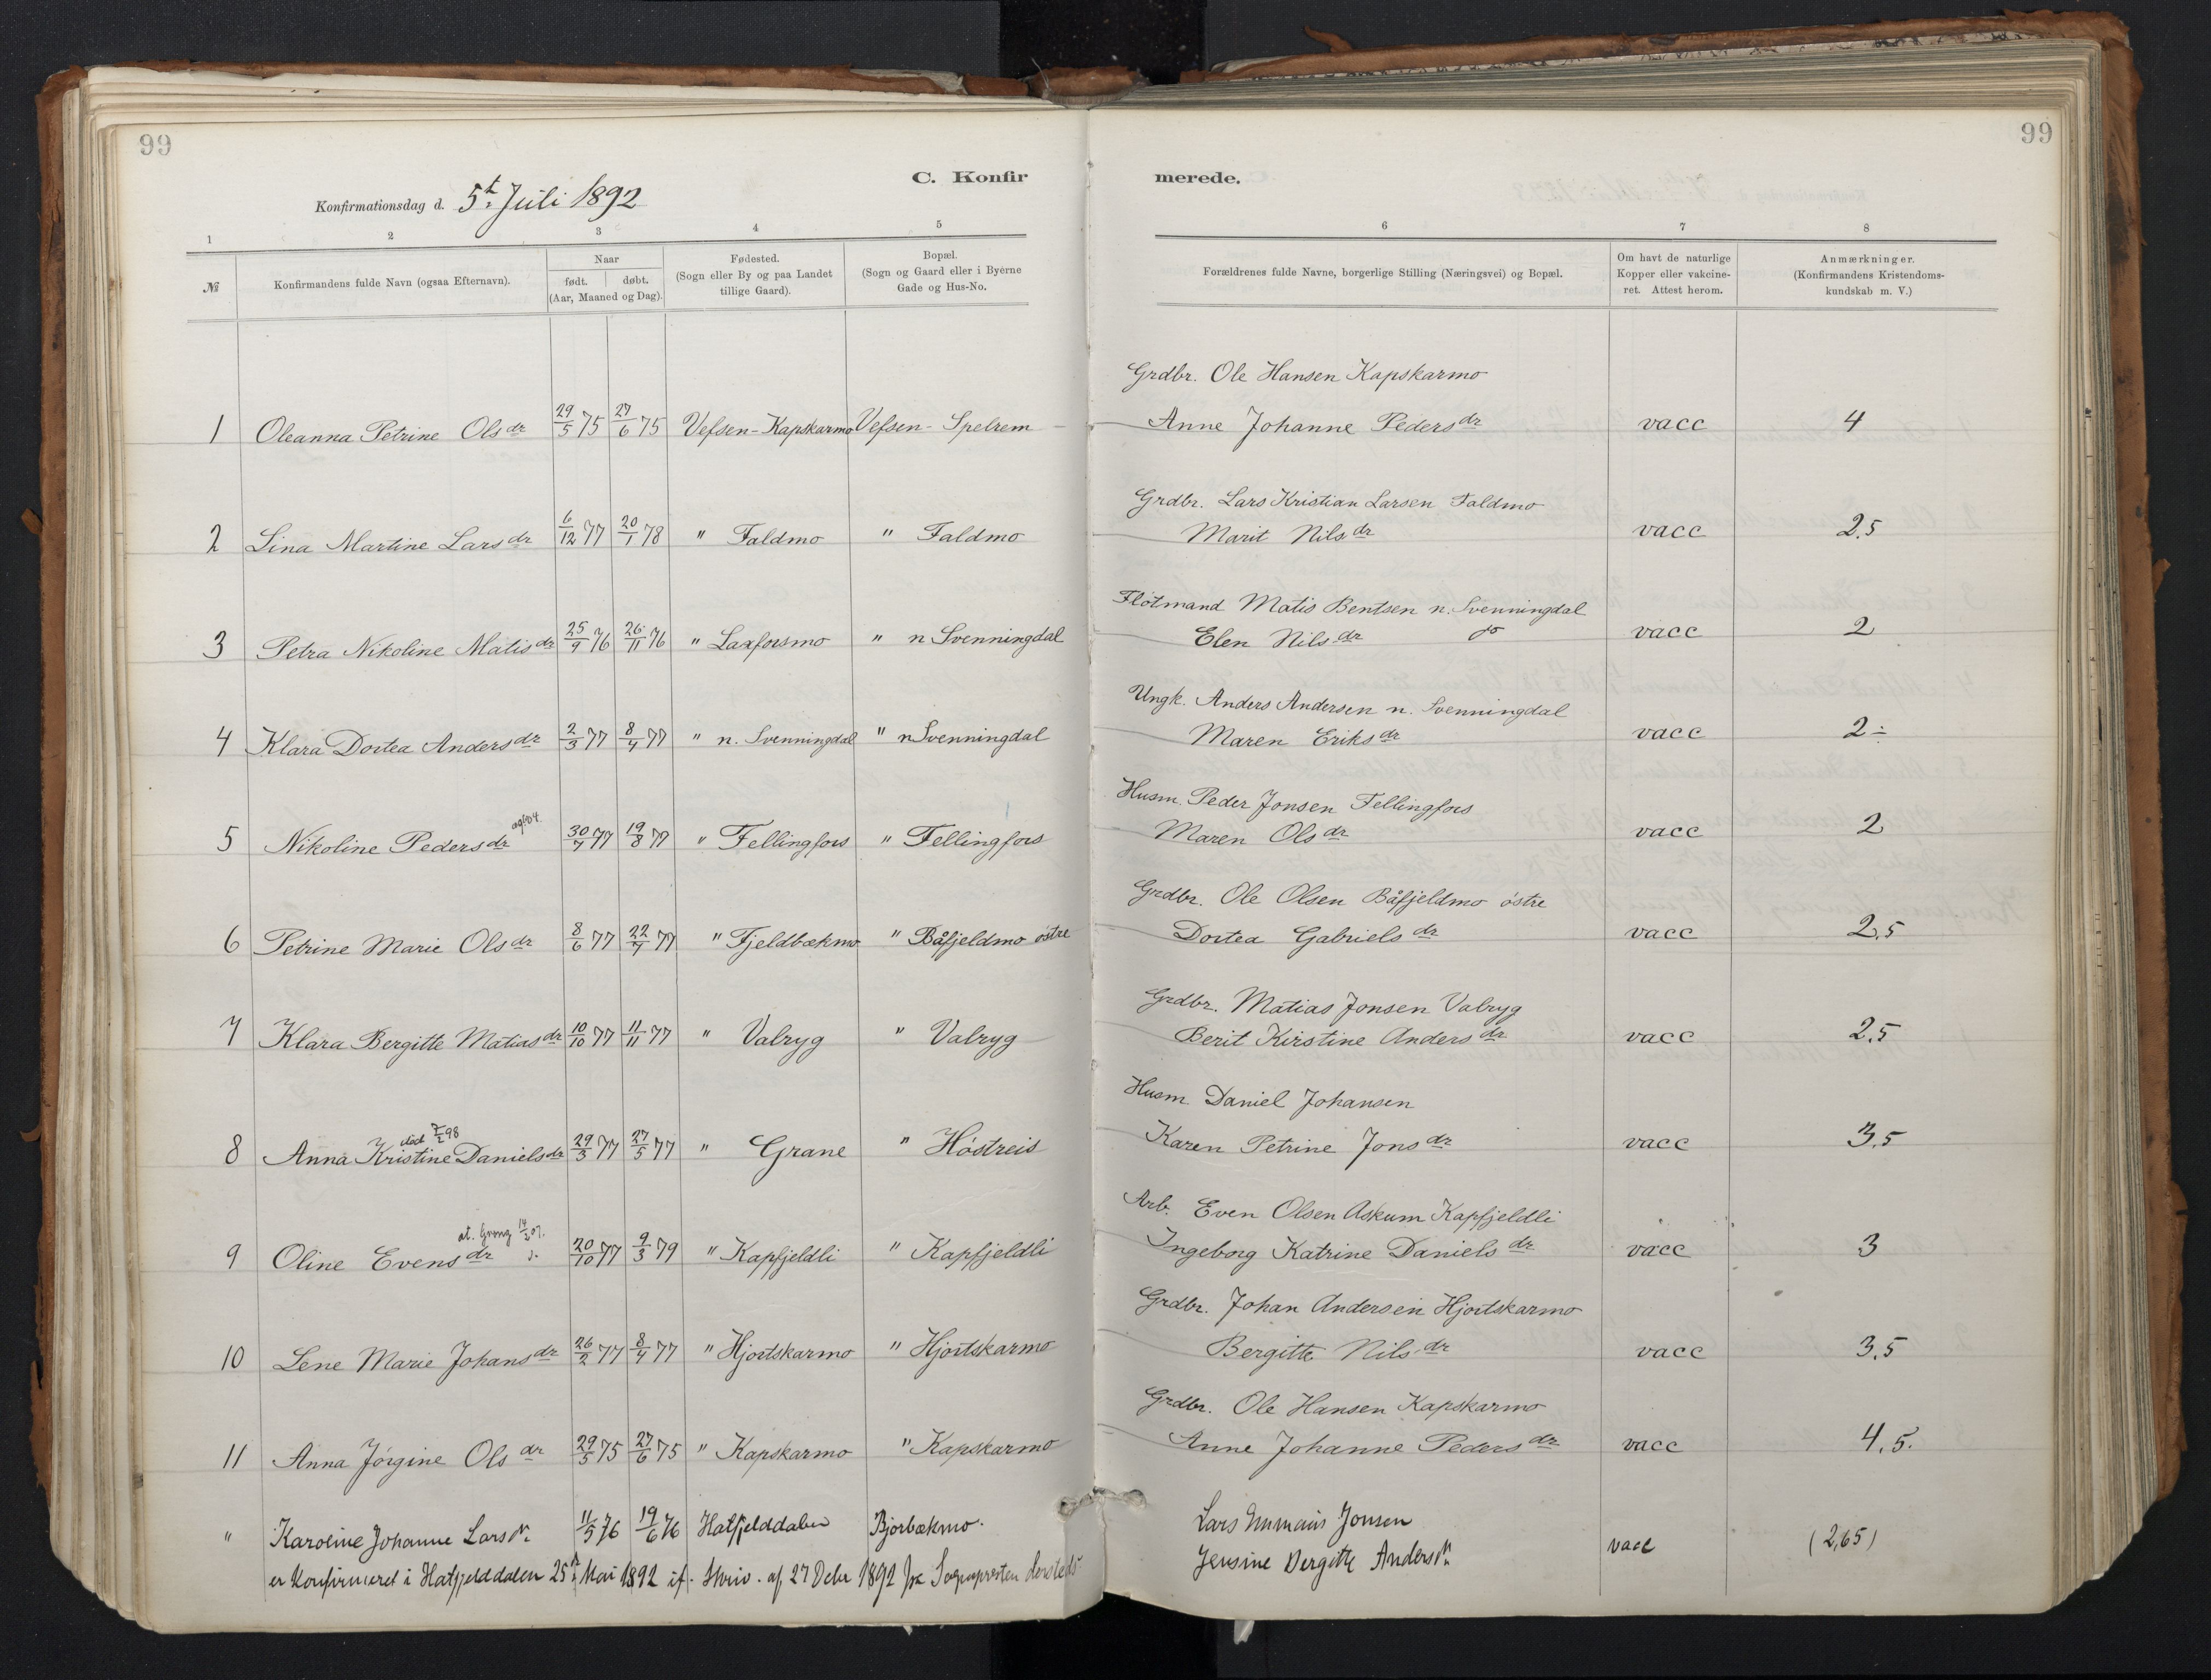 99
99
C. Konfirmerede.
Konfirmationsdag d. 5t. Juli 1892
1 2 3 4 5 6 7 8
№ Konfirmandens fulde Navn (ogsaa Efternavn). Naar født. døbt. (Aar, Maaned og Dag). Fødested. (Sogn eller By og paa Landet tillige Gaard). Bopæl. (Sogn og Gaard eller i Byerne Gade og Hus-No. Forældrenes fulde Navne, borgerlige Stilling (Næringsvei) og Bopæl. Om havt de naturlige Kopper eller vakcineret. Attest herom. Anmærkninger. (Konfirmandens Kristendomskundskab m. V.)
Grdbr. Ole Hansen Kapskarmo
1 Oleanna Petrine Olsdr 29/5 75 27/6 75 Vefsen-Kapskarmo Vefsen-Spelrem Anne Johanne Pedersdr vacc 4
Grdbr. Lars Kristian Larsen Faldmo
2 Lina Martine Larsdr 6/12 77 20/1 78 " Faldmo " Faldmo Marit Nilsdr vacc 2.5
Flötmand Matis Bentsen n. Svenningdal
3 Petra Nikoline Matisdr 25/9 76 26/11 76 " Laxforsmo " n Svenningdal Elen Nilsdr do vacc 2
Ungk. Anders Andersen n. Svenningdal
4 Klara Dortea Andersdr 2/3 77 8/4 77 " n. Svenningdal " n Svenningdal Maren Eriksdr vacc 2÷
Husm. Peder Jonsen Fellingfors
5 Nikoline Pedersdr 30/7 77 19/8 77 " Fellingfors " Fellingfors Maren Olsdr vacc 2
Grdbr. Ole Olsen Båfjeldmo östre
6 Petrine Marie Olsdr 8/6 77 22/7 77 " Fjeldbækmo " Båfjeldmo östre Dortea Gabrielsdr vacc 2.5
Grdbr. Matias Jonsen Valryg
7 Klara Bergitte Matiasdr 10/10 77 11/11 77 " Valryg " Valryg Berit Kirstine Andersdr vacc 2.5
Husm Daniel Johansen
död 7/2 98
8 Anna Kristine Danielsdr 29/3 77 27/5 77 " Grane " Höstreis Karen Petrine Jonsdr vacc 3.5
Arb. Even Olsen Askum Kapfjeldli
at. Grong
9 Oline Evensdr 20/10 77 9/3 79 " Kapfjeldli " Kapfjeldli Ingeborg Katrine Danielsdr vacc 3
Grdbr. Johan Andersen Hjortskarmo
10 Lene Marie Johansdr 26/2 77 8/4 77 " Hjortskarmo " Hjortskarmo Bergitte Nilsdr vacc 3.5
Grdbr. Ole Hansen Kapskarmo
11 Anna Jörgine Olsdr 29/5 75 27/6 75 " Kapskarmo " Kapskarmo Anne Johanne Pedersdr vacc 4.5.
Lars Jonsen
" Karoline Johanne Larsdr. 11/5 76 19/6 76 Hatfjelddalen Bjorbækmo. Jensine Bergitte Andersdr. vacc (2,65)
er konfirmeret i Hatfjelddalen 25de Mai 1892 if. Skriv. af 27 Debr 1892 fra Sognepresten